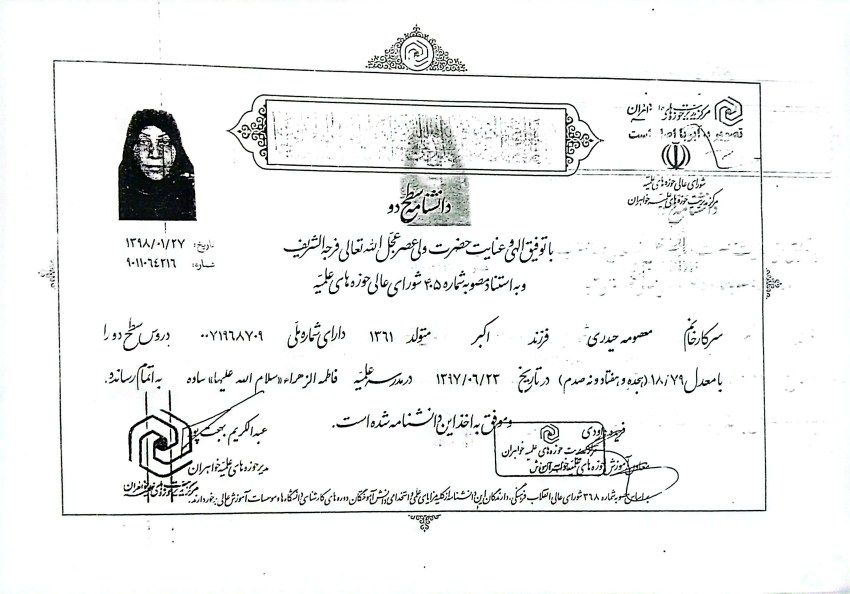 مرکز مدیریت حوزه‌های علمیه خواهران
تصویر برابر با اصل است
شورای عالی حوزه های علمیه
مرکز مدیریت حوزه های علمیه خواهران
دانشنامه سطح دو
تاریخ: ۱۳۹۸/۰۱/۲۷
شماره: ۹۰۱۱۰۶۴۲۱۶
با توفیق الهی و عنایت حضرت ولی عصر عجل الله تعالی فرجه الشریف
و به استناد مصوبه شماره ۴۰۵ شورای عالی حوزه های علمیه
سرکار خانم معصومه حیدری فرزند اکبر متولد ۱۳۶۱ دارای شماره ملی ۰۰۷۱۹۶۸۷۰۹ دروس سطح دو را
با معدل ۱۸/۷۹ (هجده و هفتاد و نه صدم) در تاریخ ۱۳۹۷/۰۶/۲۳ در مدرسه علمیه فاطمه الزهراء «سلام الله علیها» ساوه به اتمام رسانده.
و موفق به اخذ این دانشنامه شده است.
عبدالکریم بهجت پور
مدیر حوزه های علمیه خواهران
مرکز مدیریت حوزه های علمیه خواهران
معاون آموزش حوزه های علمیه خواهران
بر اساس مصوبه شماره ۳۶۸ شورای عالی انقلاب فرهنگی، دارندگان این دانشنامه از کلیه مزایای علمی و استخدامی دانش آموختگان دوره های کارشناسی دانشگاه ها و موسسات آموزش عالی برخوردارند.